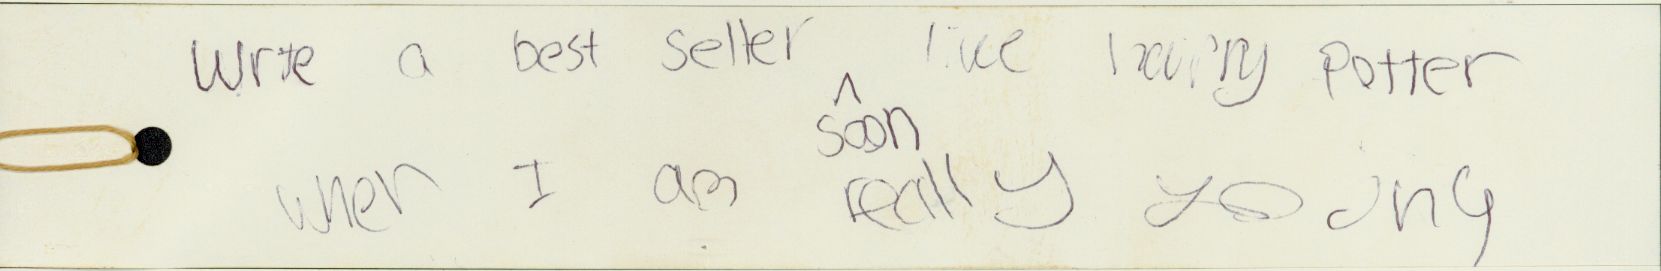 Write a best seller ^ like harry Potter
soon
when I am really young